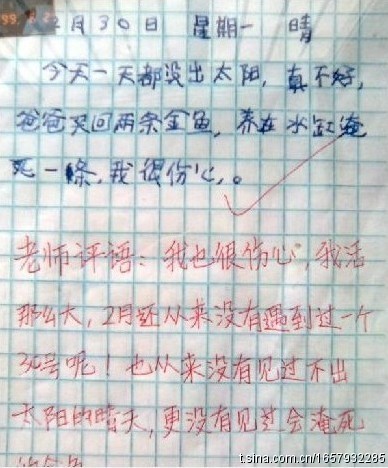 2月30日 星期一 晴
今天一天都没出太阳,真不好,
爸爸买回两条金鱼,养在水缸淹
死一條,我很伤心。
老师评语:我也很伤心,我活
那么大,2月还从来没有遇到过一个
30号呢!也从来没有见过不出
太阳的晴天,更没有见过会淹死
的金鱼
t.sina.com.cn/1657932285